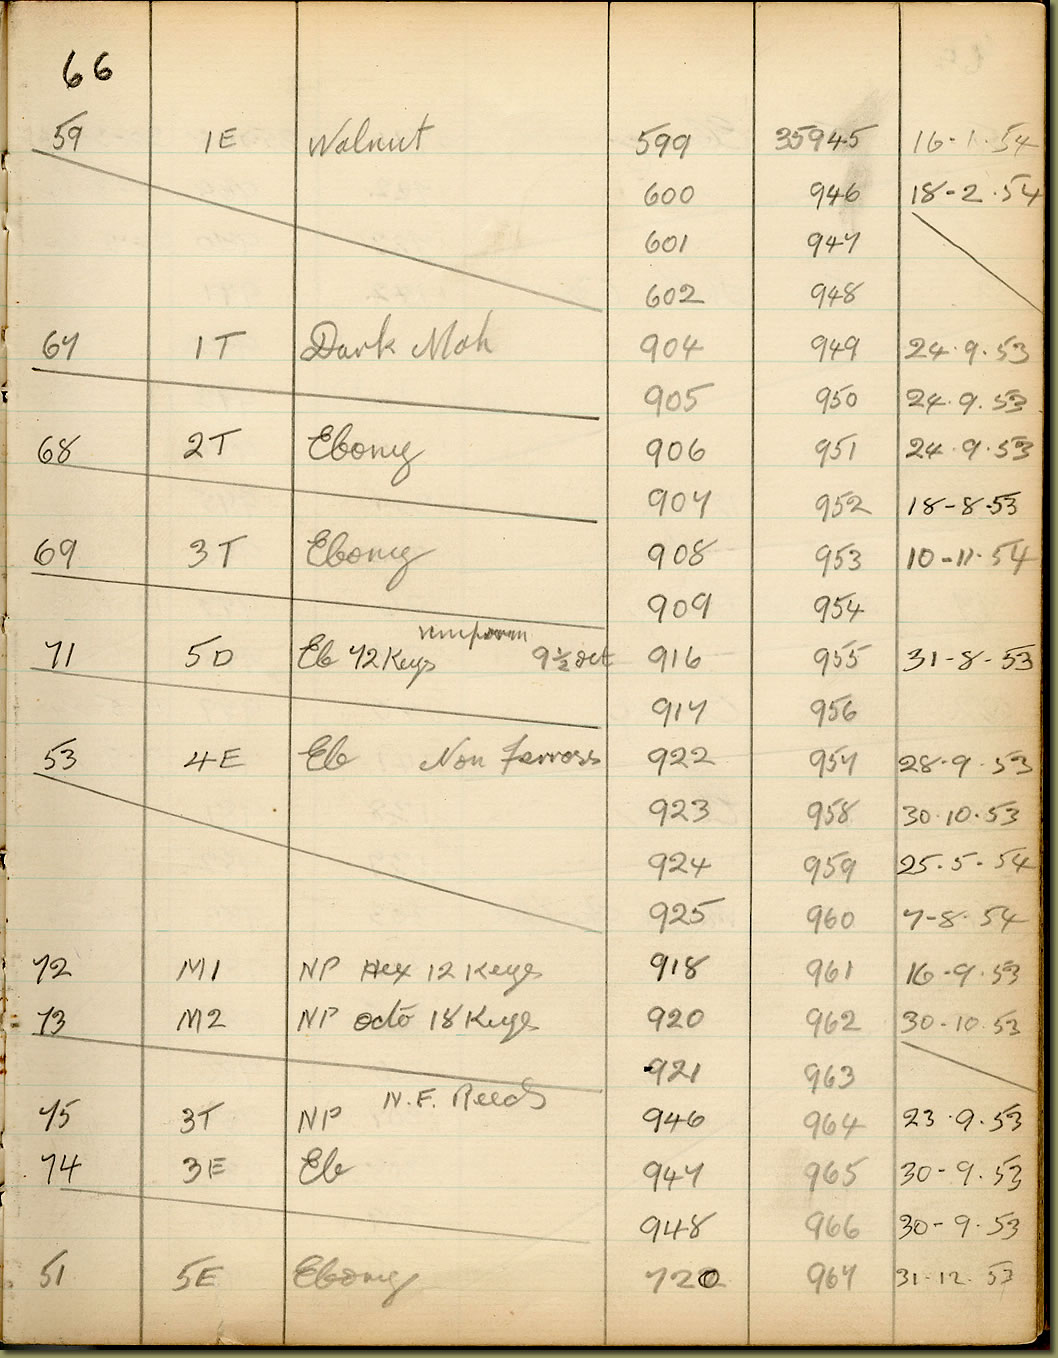 66
59 1E Walnut 599 35945 16-1-54
600 946 18-2-54
601 947
602 948
67 1T Dark Mah 904 949 24.9.53
905 950 24.9.53
68 2T Ebony 906 951 24.9.53
907 952 18-8-53
69 3T Ebony 908 953 10-11-54
909 954
71 5D Eb 72 Keys 9½ oct 916 955 31-8-53
917 956
53 4E Eb Non ferross 922 957 28-9-53
923 958 30.10.53
924 959 25.5-54
925 960 7-8-54
72 M1 NP Hex 12 Keys 918 961 16-9.53
73 M2 NP octo 18 Keys 920 962 30-10.53
921 963
N.F. Reeds
75 3T NP 946 964 23.9.53
74 3E Eb 947 965 30-9.53
948 966 30-9.53
51 5E Ebony 720 967 31-12.53